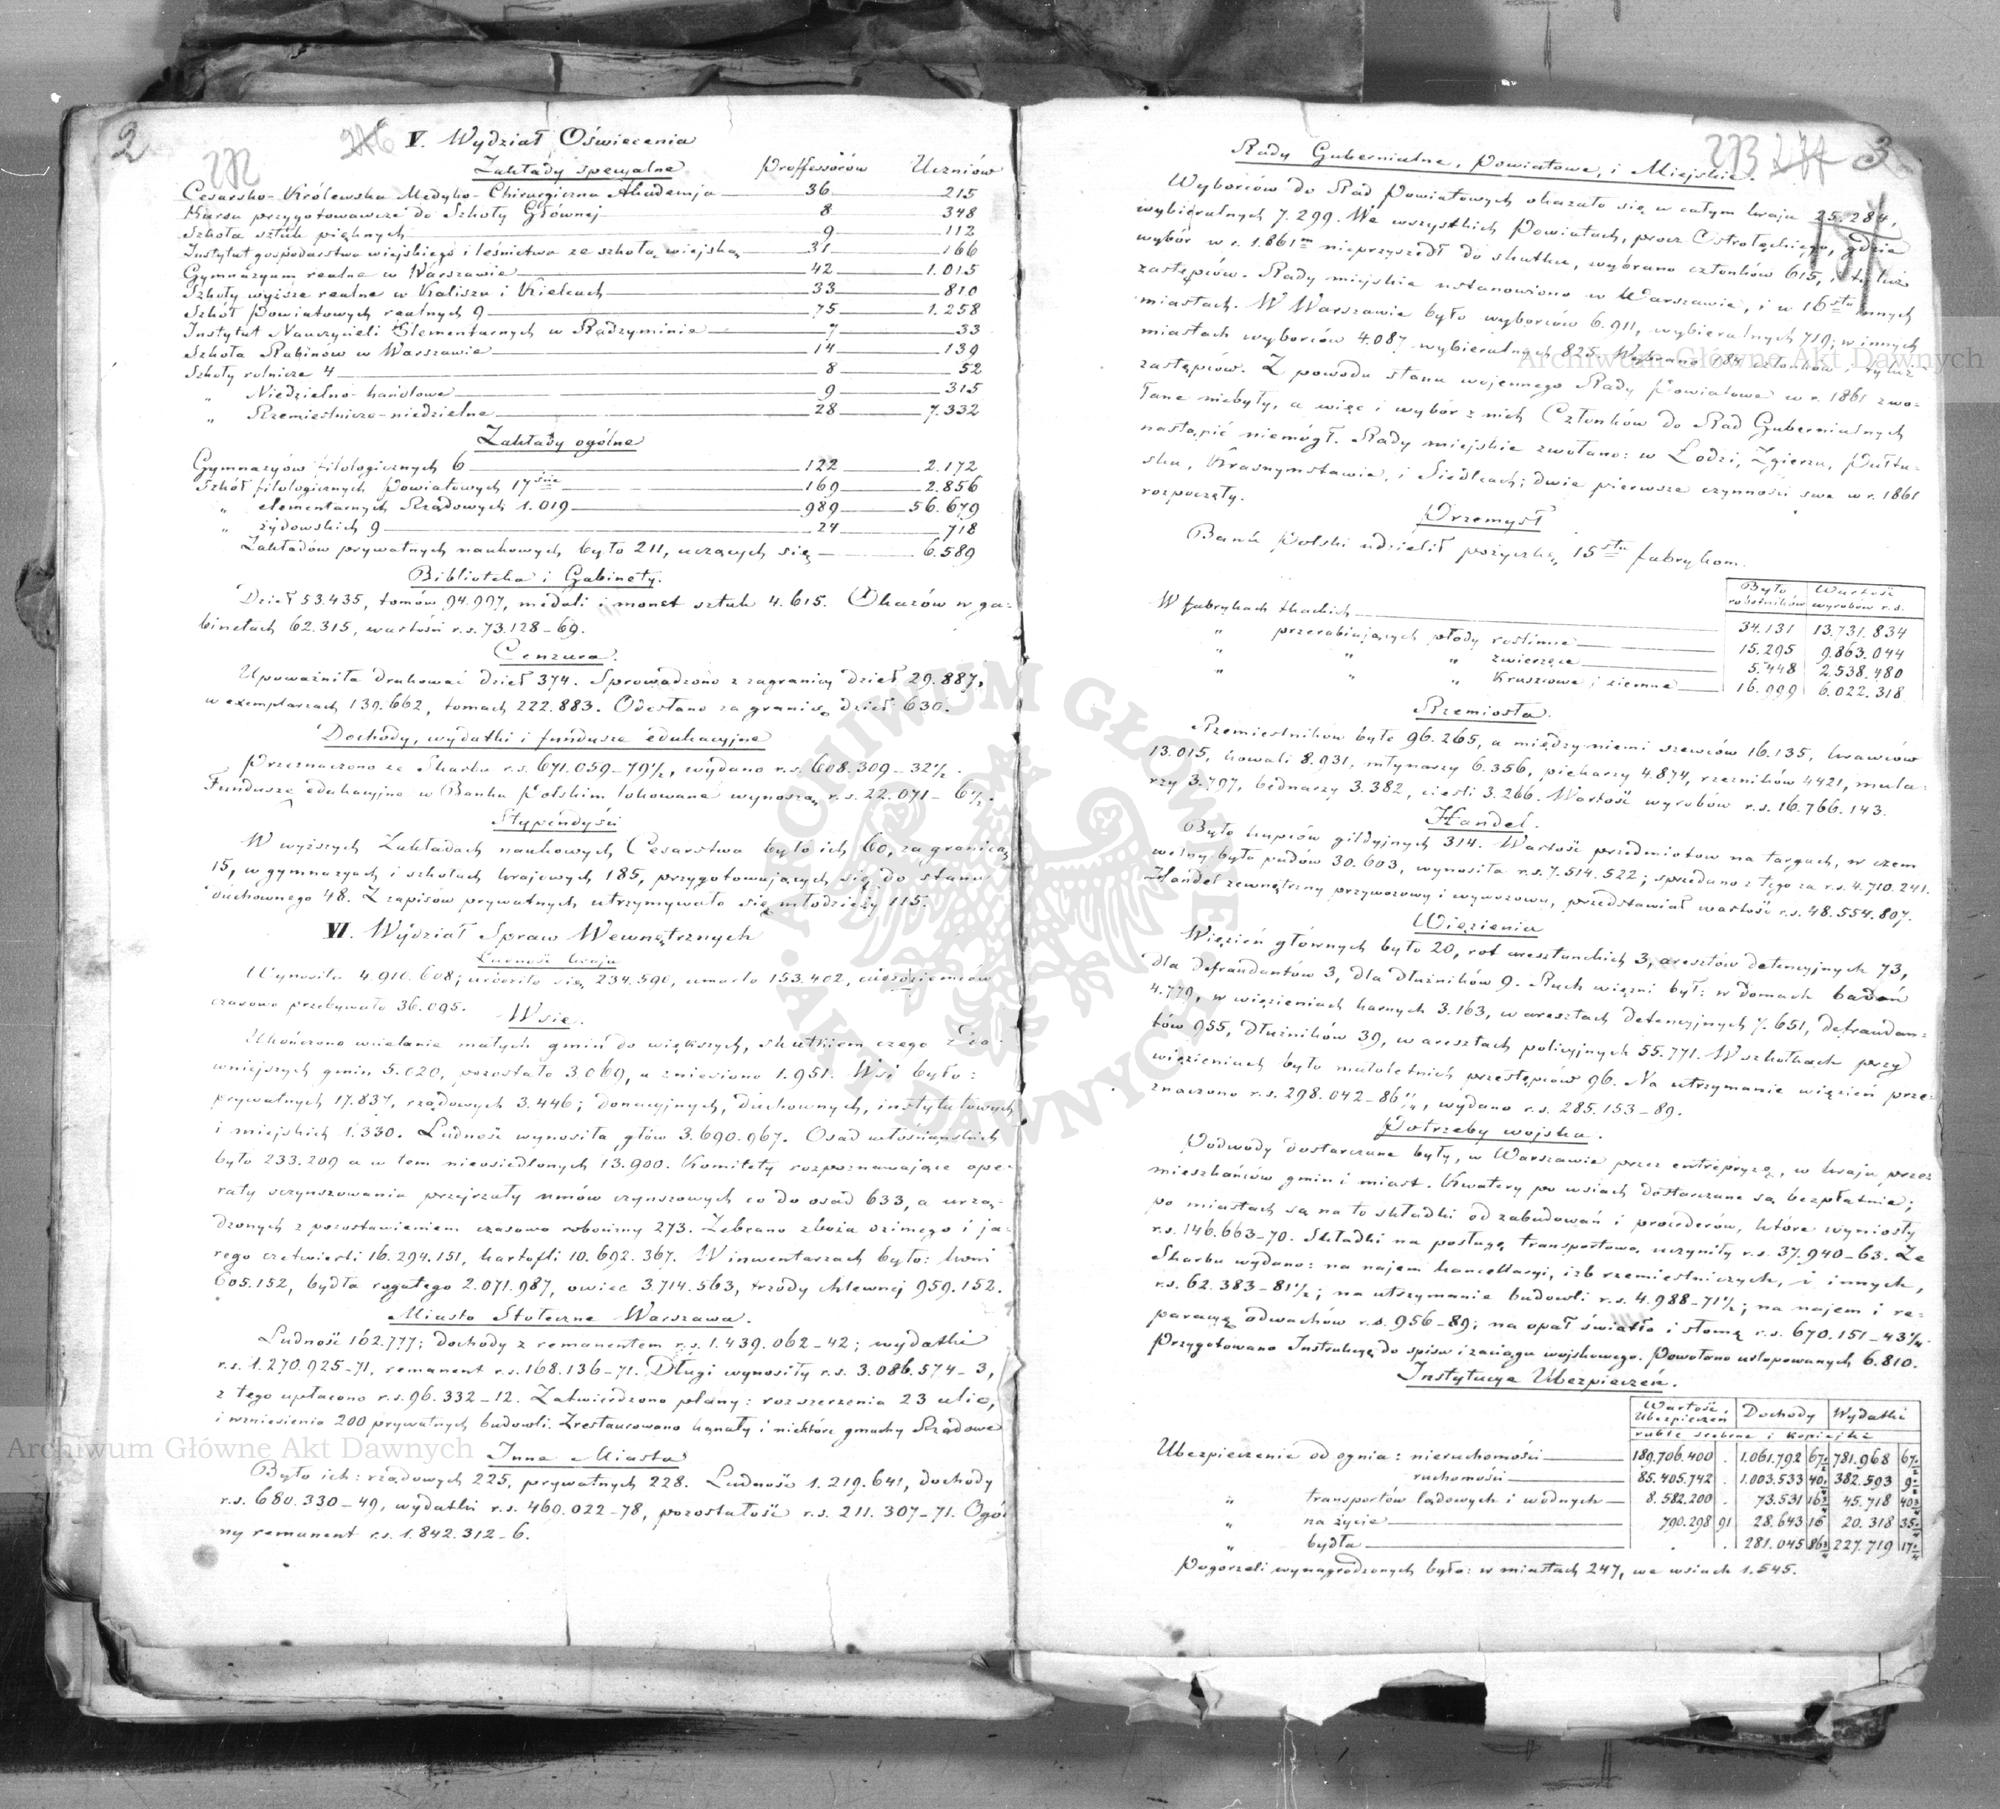 2
272
V. Wydział Oświecenia
Zakłady specjalne Proffessorów Uczniów
Cesarsko-Królewska Medyko-Chirurgiczna Akademja 36 215
Kursa przygotowawcze do Szkoły Głównej 8 348
Szkoła sztuk pięknych 9 112
Instytut gospodarstwa wiejskiego i leśnictwa ze szkołą wiejską 31 166
Gymnazyum realne w Warszawie 42 1.015
Szkoły wyższe realne w Kaliszu i Kielcach 33 810
Szkół Powiatowych realnych 9 75 1.258
Instytut Nauczycieli Elementarnych w Radzyminie 7 33
Szkoła Rabinów w Warszawie 14 139
Szkoły rolnicze 4 8 52
„ Niedzielno-handlowe 9 315
„ Rzemieślniczo-niedzielne 28 7.332
Zakłady ogólne
Gymnazyów filologicznych 6 122 2.172
Szkół filologicznych Powiatowych 17 169 2.856
„ elementarnych Rządowych 1.019 989 56.679
„ żydowskich 9 24 718
Zakładów prywatnych naukowych było 211, uczących się 6.589
Biblioteka i Gabinety.
Dzieł 53.435, tomów 94.997, medali i monet sztuk 4.615. Okazów w ga-
binetach 62.315, wartości r.s. 73.128-69.
Cenzura.
Upoważniła drukować dzieł 374. Sprowadzono z zagranicy dzieł 29.887,
w exemplarzach 139.662, tomach 222.883. Odesłano za granicę dzieł 630.
Dochody, wydatki i fundusze edukacyjne
Przeznaczono ze Skarbu r.s. 671.059-79½, wydano r.s. 608.309-32½.
Fundusze edukacyjne w Banku Polskim lokowane wynoszą r.s. 22.071-6½.
Stypendyści
W wyższych Zakładach naukowych Cesarstwa było ich 60, za granicą
15, w gymnazyach i szkołach krajowych 185, przygotowujących się do stanu
duchownego 48. Z zapisów prywatnych utrzymywało się młodzieży 115.
VI. Wydział Spraw Wewnętrznych
Ludność kraju
Wynosiła 4.910.608; urodziło się 234.590, umarło 153.402, cudzoziemców
czasowo przebywało 36.095.
Wsie.
Ukończono wcielanie małych gmin do większych, skutkiem czego z da-
wniejszych gmin 5.020, pozostało 3.069, a zniesiono 1.951. Wsi było:
prywatnych 17.837, rządowych 3.446; donacyjnych, duchownych, instytutowych
i miejskich 1.330. Ludność wynosiła głów 3.690.967. Osad włościańskich
było 233.209 a w tem nieosiedlonych 13.900. Komitety rozpoznawające ope-
raty oczynszowania przejrzały umów czynszowych co do osad 633, a urzą-
dzonych z pozostawieniem czasowo robocizny 273. Zebrano zboża ozimego i ja-
rego czetwierti 16.294.151, kartofli 10.692.367. W inwentarzach było: koni
605.152, bydła rogatego 2.071.987, owiec 3.714.563, trzody chlewnej 959.152.
Miasto Stołeczne Warszawa.
Ludność 162.777; dochody z remanentem r.s. 1.439.062-42; wydatki
r.s. 1.270.925-71, remanent r.s. 168.136-71. Długi wynosiły r.s. 3.086.574-3,
z tego upłacono r.s. 96.332-12. Zatwierdzono plany: rozszerzenia 23 ulic,
i wzniesienia 200 prywatnych budowli. Zrestaurowano kanały i niektóre gmachy Rządowe
Inne Miasta
Było ich: rządowych 225, prywatnych 228. Ludność 1.219.641, dochody
r.s. 680.330-49, wydatki r.s. 469.022-78, pozostałość r.s. 211.307-71. Ogól
ny remanent r.s. 1.842.312-6.
273 3
Rady Gubernialne, Powiatowe, i Miejskie.
Wyborców do Rad Powiatowych okazało się w całym kraju 25.284,
wybieralnych 7.299. We wszystkich Powiatach, prócz Ostrołęckiego, gdzie
wybór w r. 1861 nieprzyszedł do skutku, wybrano członków 615, i tyluż
zastępców. Rady miejskie ustanowiono w Warszawie, i w 16stu innych
miastach. W Warszawie było wyborców 6.911, wybieralnych 719; w innych
miastach wyborców 4.087 wybieralnych 825. Wybrano 184 członków i tyluż
zastępców. Z powodu stanu wojennego Rady Powiatowe w r. 1861 zwo-
łane niebyły, a więc i wybór z nich Członków do Rad Gubernialnych
nastąpić niemógł. Rady miejskie zwołano: w Łodzi, Zgierzu, Pułtu-
sku, Krasnymstawie, i Siedlcach; dwie pierwsze czynności swe w r. 1861
rozpoczęły.
Przemysł
Bank Polski udzielił pożyczkę, 15stu fabrykom.
Było robotników Wartość wyrobów r.s.
W fabrykach tkackich 34.131 13.731.834
„ przerabiających płody roślinne 15.295 9.863.044
„ „ „ zwierzęce 5.448 2.538.480
„ „ „ kruszcowe i ziemne 16.999 6.022.318
Rzemiosła.
Rzemieślników było 96.265, a między niemi szewców 16.135, krawców
13.015, kowali 8.931, młynarzy 6.356, piekarzy 4.874, rzeźników 4421, mula-
rzy 3.797, bednarzy 3.382, cieśli 3.266. Wartość wyrobów r.s. 16.766.143.
Handel.
Było kupców gildyjnych 314. Wartość przedmiotow na targach, w czem
wełny było pudów 30.603, wynosiła r.s. 7.514.522; sprzedano z tego za r.s. 4.710.241.
Handel zewnętrzny przywozowy i wywozowy, przedstawiał wartość r.s. 48.554.807.
Więzienia
Więzień głównych było 20, rot aresztanckich 3, aresztów detencyjnych 73,
dla defraudantów 3, dla dłużników 9. Ruch więźni był: w domach badań
4.779, w więzieniach karnych 3.163, w aresztach detencyjnych 7.651, defraudan-
tów 955, dłużników 39, w aresztach policyjnych 55.771. W szkołkach przy
więzieniach było małoletnich przestępców 96. Na utrzymanie więzień prze-
znaczono r.s. 298.042-86, wydano r.s. 285.153-89.
Potrzeby wojska.
Podwody dostarczane były, w Warszawie przez entrepryzę, w kraju przez
mieszkańców gmin i miast. Kwatery po wsiach dostarczane są bezpłatnie;
po miastach są na to składki od zabudowań i procederów, które wyniosły
r.s. 146.663-70. Składki na posługę transportową uczyniły r.s. 37.940-63. Ze
Skarbu wydano: na najem kancellaryi, izb rzemieślniczych, i innych,
r.s. 62.383-81½; na utrzymanie budowli r.s. 4.988-71½; na najem i re-
paracyę odwachów r.s. 956-89; na opał światło i słomę r.s. 670.151-43¾.
Przygotowano Instrukcyę do spisu i zaciągu wojskowego. Powołano ustępowanych 6.810.
Instytucye Ubezpieczeń.
Wartość Ubezpieczeń Dochody Wydatki
ruble srebrne i kopiejki
Ubezpieczenie od ognia: nieruchomości 189.706.400 . 1.061.792 67 781.968 67
ruchomości 85.405.742 . 1.003.533 40 382.593 9
„ transportów lądowych i wodnych 8.582.200 . 73.531 16 45.718 40
„ na życie 790.298 91 28.643 16 20.318 35
„ bydła . . 281.045 86 227.719 17
Pogorzeli wynagrodzonych było: w miastach 247, we wsiach 1.545.
Archiwum Główne Akt Dawnych
Archiwum Główne Akt Dawnych
ARCHIWUM GŁÓWNE AKT DAWNYCH